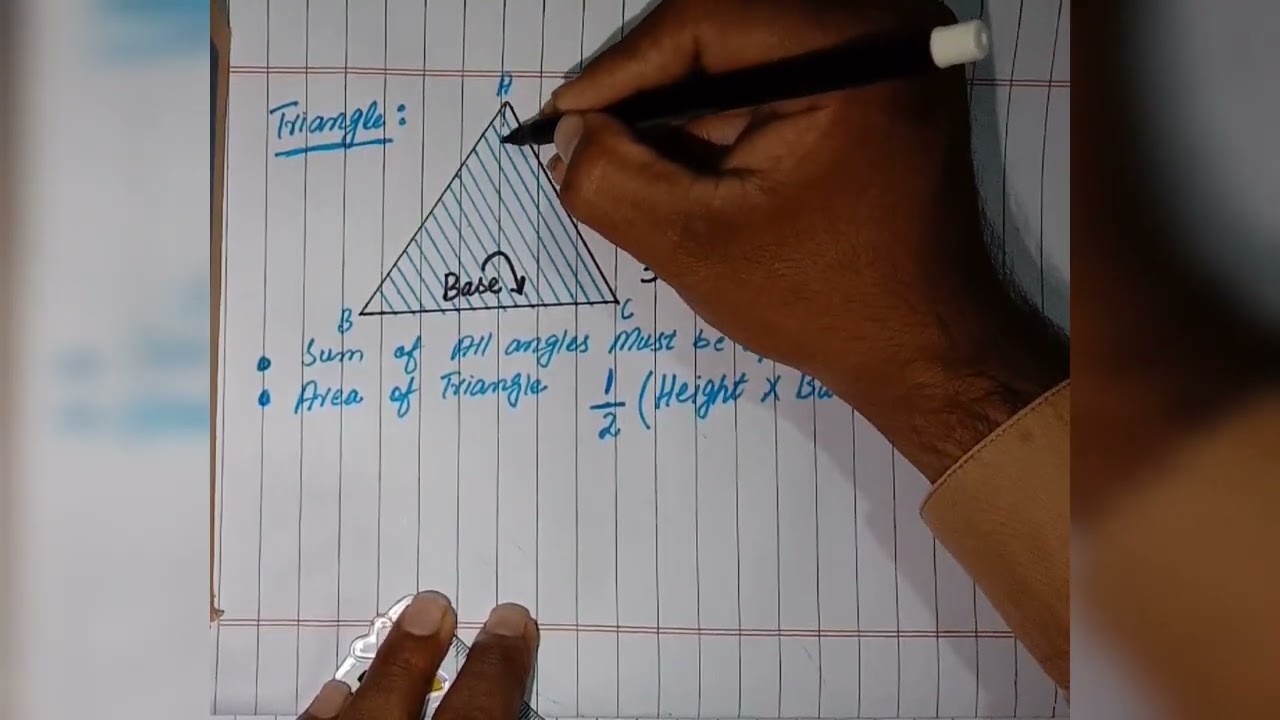 Triangle:
A
Base
B
C
Sum of All angles Must be
Area of Triangle 1/2 (Height X